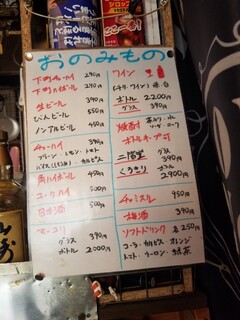 シロップ
おのみもの
下町チューハイ 290円
下町ハイボール 290円
生ビール 390円
びんビール 550円
ノンアルビール 450円
チューハイ 390円
プレーン・レモン・トマト
角ハイボール 450円
コークハイ 500円
日本酒 500円
マッコリ
グラス 390円
ボトル 2000円
ワイン
赤・白
ボトル 2200円
グラス 390円
焼酎
ボトルキープ可
二階堂 グラス 390円
くろきり ボトル 2900円
チャミスル 950円
梅酒 390円
ソフトドリンク 各250円
コーラ・カルピス・オレンジ
トマト・ウーロン・緑茶